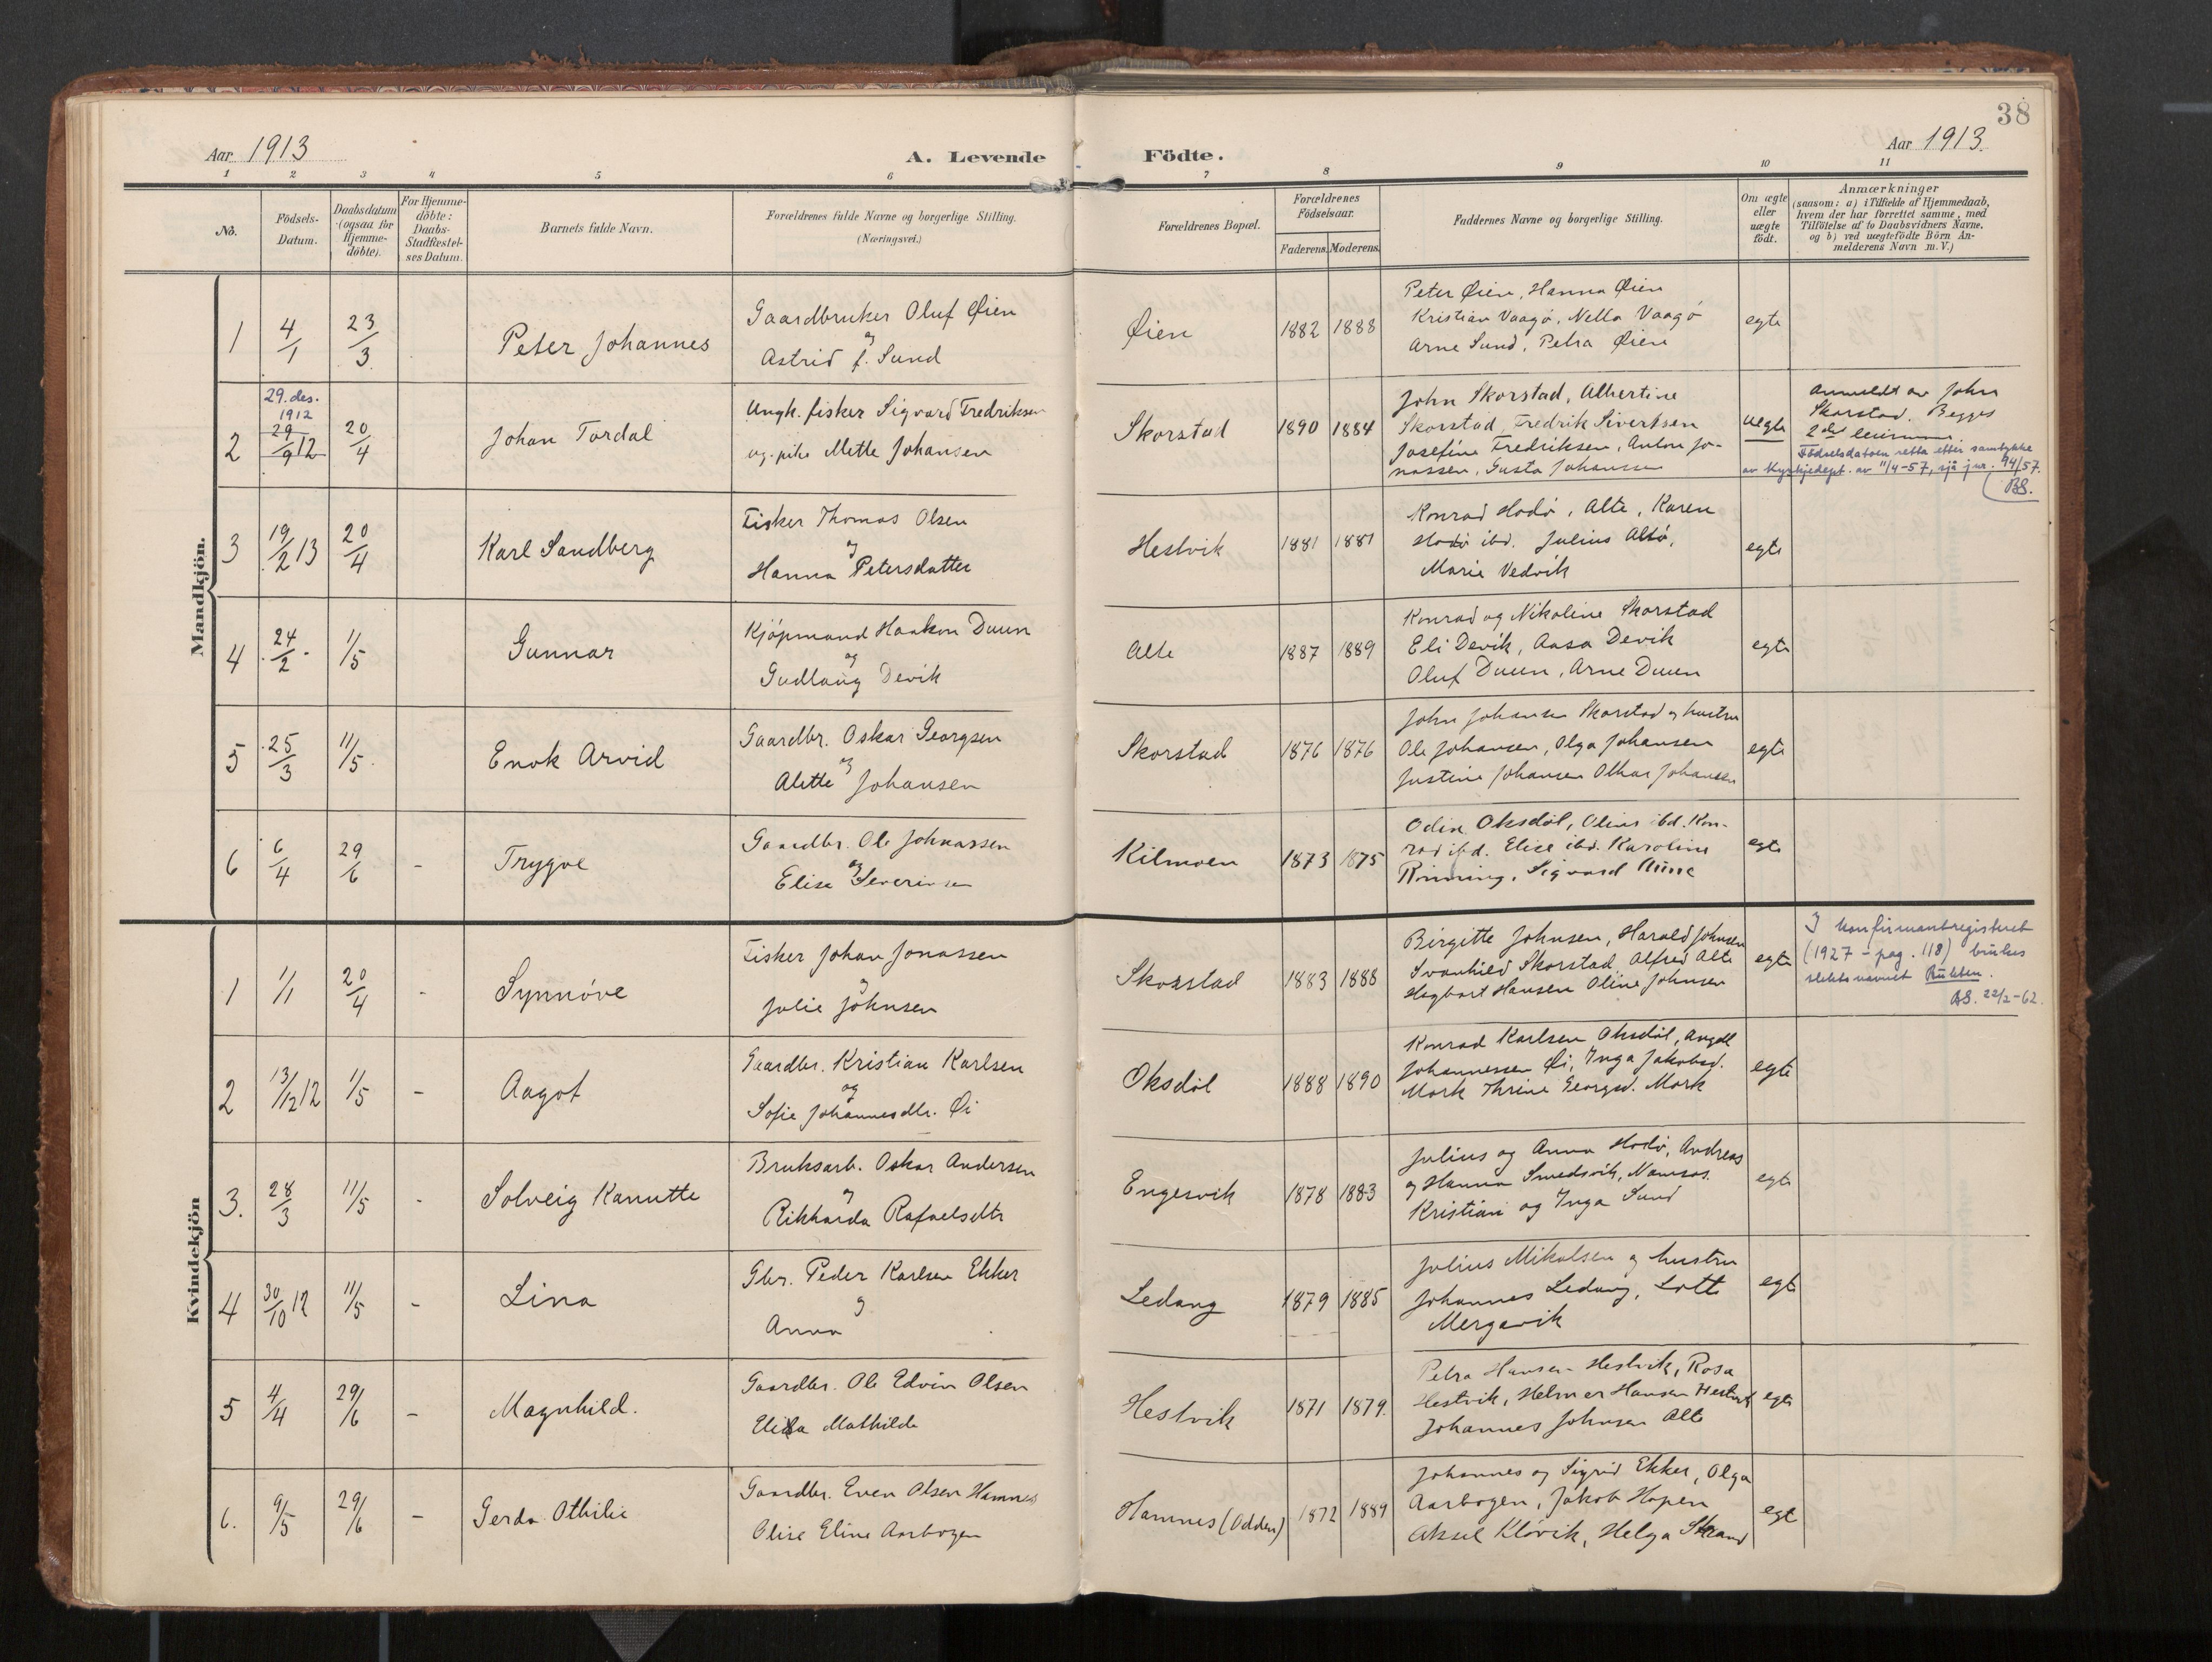 38
Aar 1913
A. Levende Födte.
Aar 1913.
1 2 3 4 5 6 7 8 9 10 11
No.
Födsels-
Datum.
Daabsdatum
(ogsaa for
Hjemme-
döbte).
For Hjemme-
döbte:
Daabs-
Stadfæstel-
ses Datum.
Barnets fulde Navn.
Forældrenes fulde Navne og borgerlige Stilling.
(Næringsvei.)
Forældrenes Bopæl.
Forældrenes
Födselsaar.
Faderens. Moderens.
Faddernes Navne og borgerlige Stilling.
Om ægte
eller
uægte
födt.
Anmærkninger
(saasom: a) i Tilfælde af Hjemmedaab,
hvem der har forrettet samme, med
Tilföielse af to Daabsvidners Navne,
og b) ved uægtefödte Börn An-
melderens Navn m. V.)
Mandkjön.
1 4/1 23/3 Peter Johannes
Gaardbruker Oluf Øien
og
Astrid f. Sund
Øien 1882 1888
Peter Øien, Hanna Øien
Kristian Vaagø, Nella Vaagø
Arne Sund, Petra Øien
egte
29. des.
1912
2 29/9 12 20/4 Johan Tordal
Ungk. fisker Sigvard Fredriksen
og pike Mette Johansen
Skorstad 1890 1884
John Skorstad, Albertine
Skorstad, Fredrik Sivertsen
Josefine Fredriksen, Anton Jo-
nassen, Gusta Johansen
uegte
Anmeldt av John
Skorstad. Begges
2det
Fødselsdatoen retta etter samtykke
av Kyrkjedept. av 11/4-57, sjå jnr. 94/57.
BS.
3 19/2 13 20/4 Karl Sandberg
Fisker Thomas Olsen
og
Hanna Petersdatter
Hestvik 1881 1881
Konrad Hodø, Alte, Karen
Hodø ibd. Julius Altø,
Marie Vedvik
egte
4 24/2 1/5 Gunnar
Kjøpmand Haakon Duun
og
Gudlaug Devik
Alte 1887 1889
Konrad og Nikoline Skorstad
Eli Devik, Aasa Devik
Oluf Duun, Arne Duun
egte
5 25/3 11/5 Enok Arvid
Gaardbr. Oskar Georgsen
og
Alette Johansen
Skorstad 1876 1876
John Johansen Skorstad og hustru
Ole Johansen, Olga Johansen
Justine Johansen Othar Johansen
egte
6 6/4 29/6 - Trygve
Gaardbr. Ole Johnassen
og
Elise Severinsen
Kilmoen 1873 1875
Odin Oksdøl, Oline ibd. Kon-
rad ibd. Elise ibd. Karoline
Rinning, Sigvard Aune
egte
Kvindekjön
1 1/1 20/4 - Synnöve
Fisker Johan Jonassen
og
Julie Johnsen
Skorstad 1883 1888
Birgitte Johnsen, Harald Johnsen
Svanhild Skorstad Alfred Alte
Hagbart Hansen Oline Johnsen
egte
I konfirmantregisteret
(1927 - pag. 118) brukes
slektsnavnet Bukten.
BS. 22/2-62.
2 13/12 12 1/5 - Aagot
Gaardbr. Kristian Karlsen
og
Sofie Johannesdtr. Øi
Oksdøl 1888 1890
Konrad Karlsen Oksdøl, Angell
Johannessen Øi, Inga Jakobsd.
Mork Thrine Georgsd. Mork
egte
3. 28/3 11/5 - Solveig Kanutte
Bruksarb. Oskar Andersen
og
Rikharda Rafaelsdtr
Engesvik 1878 1883
Julius og Anna Hodø, Andreas
og Hanna Smedsvik, Namsos.
Kristian og Inga Sund
egte
4 30/10 12 11/5 - Lina
Gbr. Peder Karlsen Ekker
og
Anna
Ledang 1879 1885
Julius Mikalsen og hustru
Johannes Ledang, Lotte
Mergavik
egte
5 4/4 29/6 - Magnhild.
Gaardbr. Ole Edvin Olsen
Elisa Mathilde
Hestvik 1871 1879.
Petra Hansen Hestvik, Rosa
Hestvik, Helmer Hansen Hestvik
Johannes Johnsen Alte
egte
6. 9/5 29/6 - Gerda Othilie
Gaardbr. Even Olsen Hamnes
Olise Eline Aarbogen
Hamnes (Odden) 1872 1889
Johannes og Sigrid Ekker, Olga
Aarbogen, Jakob Hopen
Aksel Kløvik, Helga Strand
egte